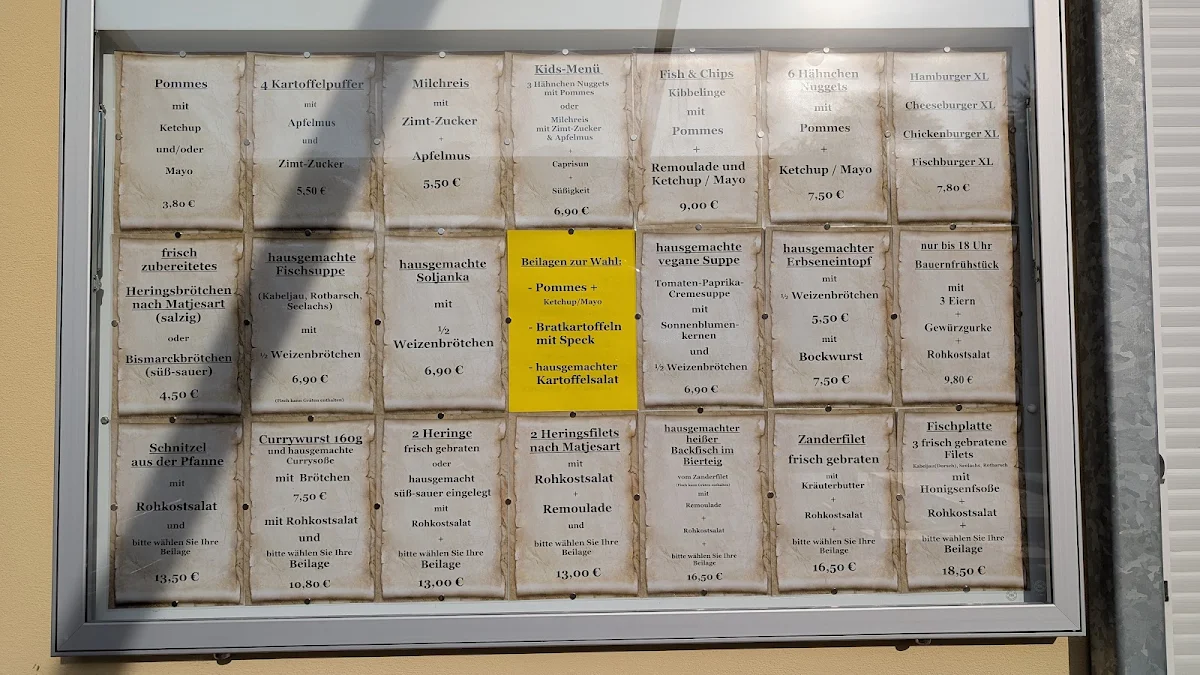 Pommes
mit
Ketchup
und/oder
Mayo
3,80 €
4 Kartoffelpuffer
mit
Apfelmus
und
Zimt-Zucker
5,50 €
Milchreis
mit
Zimt-Zucker
+
Apfelmus
5,50 €
Kids-Menü
3 Hähnchen Nuggets
mit Pommes
oder
Milchreis
mit Zimt-Zucker
& Apfelmus
+
Caprisun
+
Süßigkeit
6,90 €
Fish & Chips
Kibbelinge
mit
Pommes
+
Remoulade und
Ketchup / Mayo
9,00 €
6 Hähnchen
Nuggets
mit
Pommes
+
Ketchup / Mayo
7,50 €
Hamburger XL
Cheeseburger XL
Chickenburger XL
Fischburger XL
7,80 €
frisch
zubereitetes
Heringsbrötchen
nach Matjesart
(salzig)
oder
Bismarckbrötchen
(süß-sauer)
4,50 €
hausgemachte
Fischsuppe
(Kabeljau, Rotbarsch,
Seelachs)
mit
½ Weizenbrötchen
6,90 €
(Fisch kann Gräten enthalten)
hausgemachte
Soljanka
mit
½
Weizenbrötchen
6,90 €
Beilagen zur Wahl:
- Pommes +
Ketchup/Mayo
- Bratkartoffeln
mit Speck
- hausgemachter
Kartoffelsalat
hausgemachte
vegane Suppe
Tomaten-Paprika-
Cremesuppe
mit
Sonnenblumen-
kernen
und
½ Weizenbrötchen
6,90 €
hausgemachter
Erbseneintopf
mit
½ Weizenbrötchen
5,50 €
mit
Bockwurst
7,50 €
nur bis 18 Uhr
Bauernfrühstück
mit
3 Eiern
+
Gewürzgurke
+
Rohkostsalat
9,80 €
Schnitzel
aus der Pfanne
mit
Rohkostsalat
und
bitte wählen Sie Ihre
Beilage
13,50 €
Currywurst 160g
und hausgemachte
Currysoße
mit Brötchen
7,50 €
mit Rohkostsalat
und
bitte wählen Sie Ihre
Beilage
10,80 €
2 Heringe
frisch gebraten
oder
hausgemacht
süß-sauer eingelegt
mit
Rohkostsalat
+
bitte wählen Sie Ihre
Beilage
13,00 €
2 Heringsfilets
nach Matjesart
mit
Rohkostsalat
+
Remoulade
und
bitte wählen Sie Ihre
Beilage
13,00 €
hausgemachter
heißer
Backfisch im
Bierteig
vom Zanderfilet
(Fisch kann Gräten enthalten)
mit
Remoulade
+
Rohkostsalat
+
bitte wählen Sie Ihre
Beilage
16,50 €
Zanderfilet
frisch gebraten
mit
Kräuterbutter
+
Rohkostsalat
+
bitte wählen Sie Ihre
Beilage
16,50 €
Fischplatte
3 frisch gebratene
Filets
Kabeljau(Dorsch), Seelachs, Rotbarsch
mit
Honigsenfsoße
+
Rohkostsalat
+
bitte wählen Sie Ihre
Beilage
18,50 €